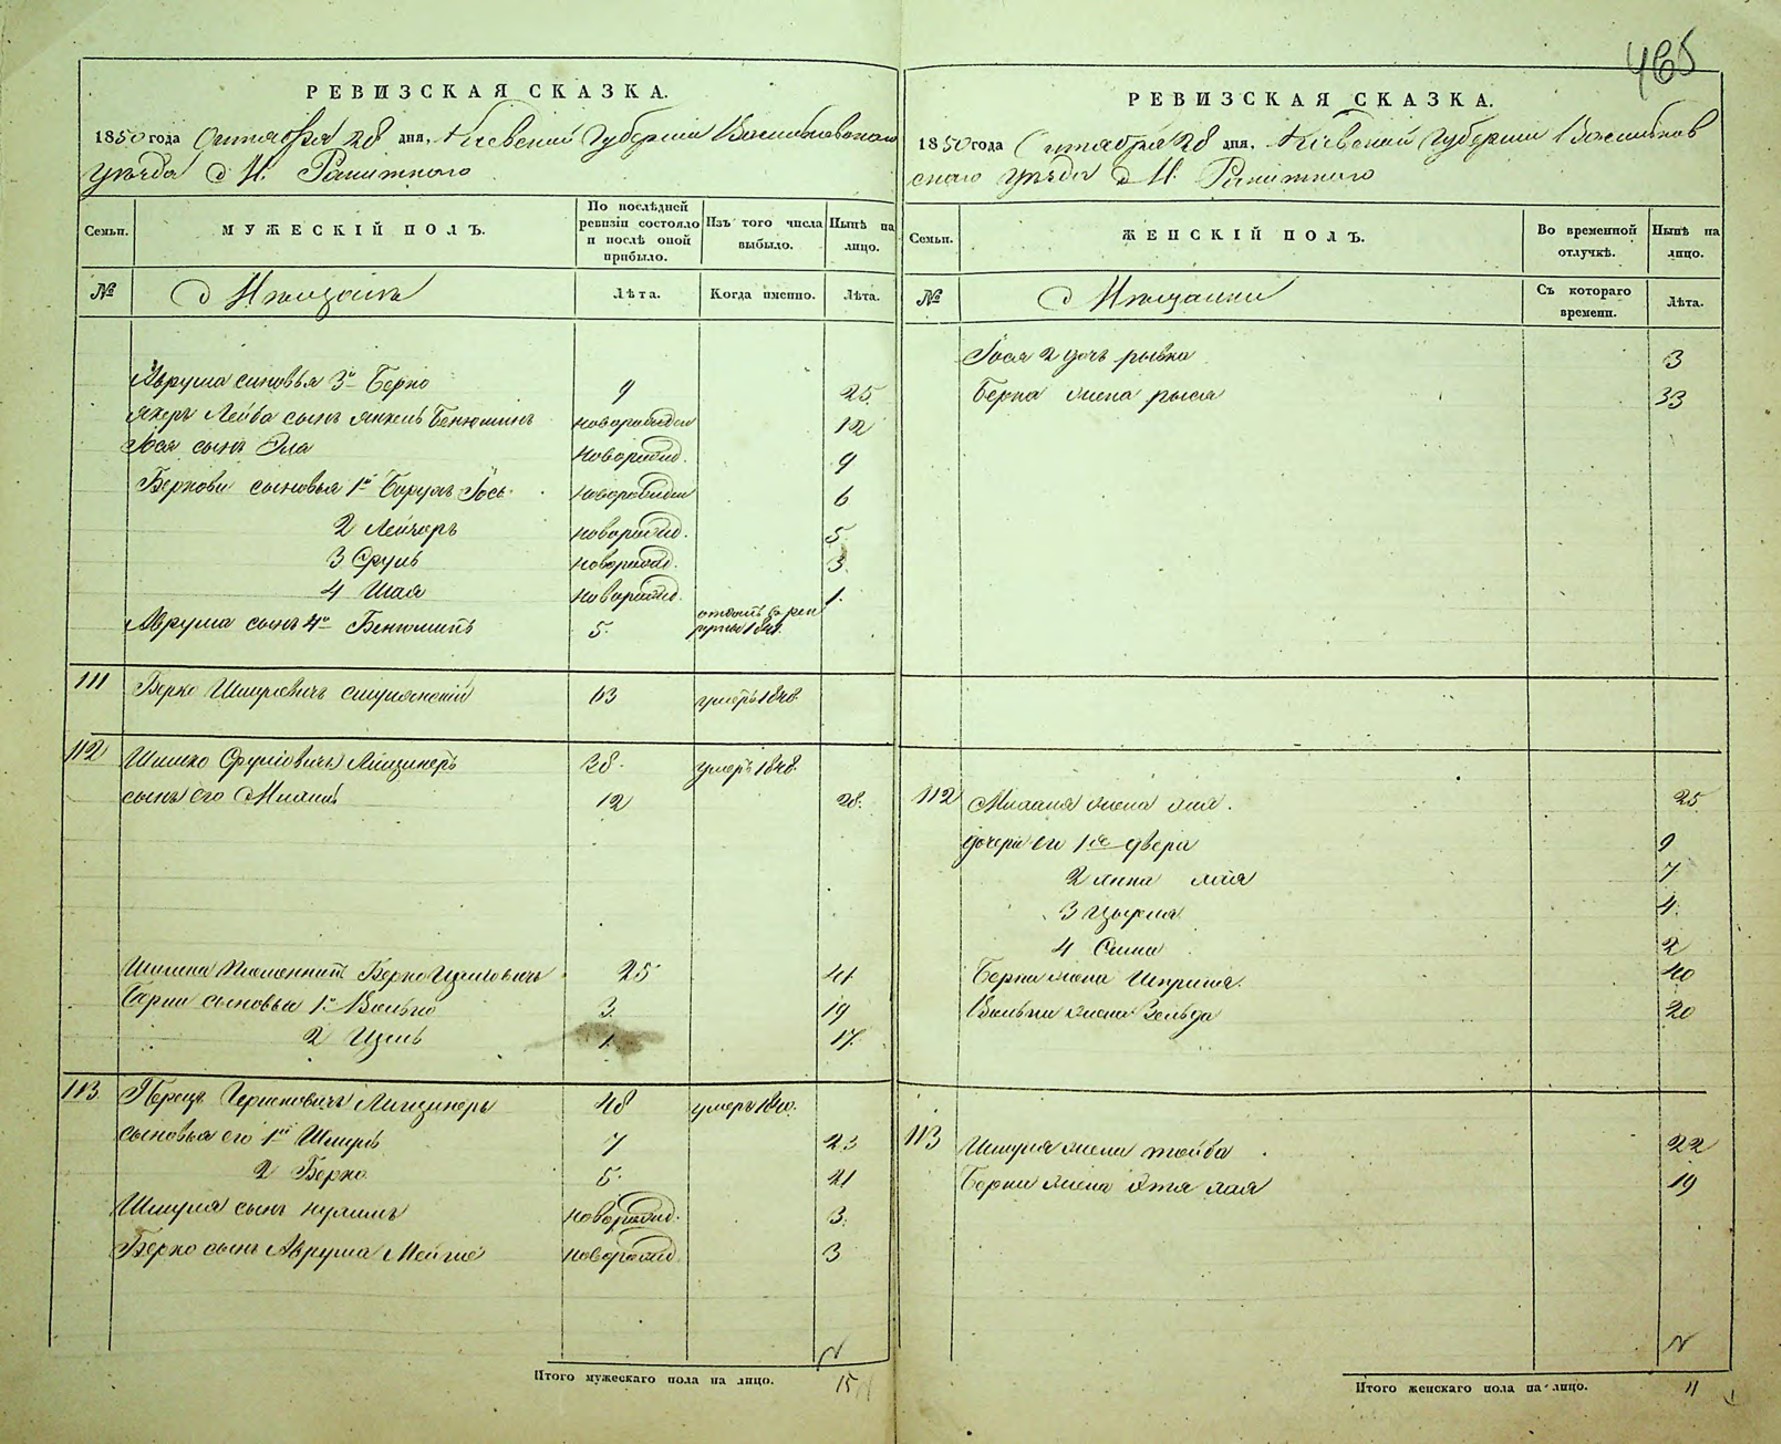 465
РЕВИЗСКАЯ СКАЗКА.
1850 года Октября 28 дня. Кіевской Губерніи Васильковскаго
уѣзда М. Ракитнаго
Семьи.
МУЖЕСКІЙ ПОЛЪ.
По послѣдней ревизіи состояло и послѣ оной прибыло.
Изъ того числа выбыло.
Нынѣ на лицо.
№
Мѣщане
Лѣта.
Когда именно.
Лѣта.
Аврума сыновья 3й Берко 9 25
Лейба сынъ Янкель Бенюминъ новорожден 12
Іося сынъ Эла новорожд. 9
Берковы сыновья 1й Борухъ Іось новорожден 6
2 Лейзоръ новорожд. 5
3 Сруль новорожд. 3
4 Шая новорожд. 1
Аврума сынъ 4й Бенюминъ 5 отданъ в рек
руты 1841.
111 Берко Шмулевичъ 63 умеръ 1848
112 Шимко Сруліовичъ 38 умеръ 1848
сынъ его 12 28
Шимка племянникъ Берко Ицковичъ 25 41
Берки сыновья 1й Волько 3 19
2 Ицко 1 17
113 Перецъ Гершковичъ 48 умеръ 1840.
сыновья его 1й Шмуль 7 23
2 Берко 5 21
Шмуля сынъ новорожд. 3
Берко сынъ Аврумъ новорожд 3
Итого мужескаго пола на лицо. 15
РЕВИЗСКАЯ СКАЗКА.
1850 года Октября 28 дня. Кіевской Губерніи Васильков
скаго уѣзда М. Ракитнаго
Семьи.
ЖЕНСКІЙ ПОЛЪ.
Во временной отлучкѣ.
Нынѣ на лицо.
№
Мѣщанки
Съ котораго времени.
Лѣта.
Іося 2 дочь рывка 3
Берка жена рыся 33
112 жена 25
дочери его 1я двера 9
2 7
3 4
4 Сима 2
Берка жена Шприца 40
Волька жена Зельда 20
113 Шмуля жена тойба 22
Берки жена 19
Итого женскаго пола на лицо. 11